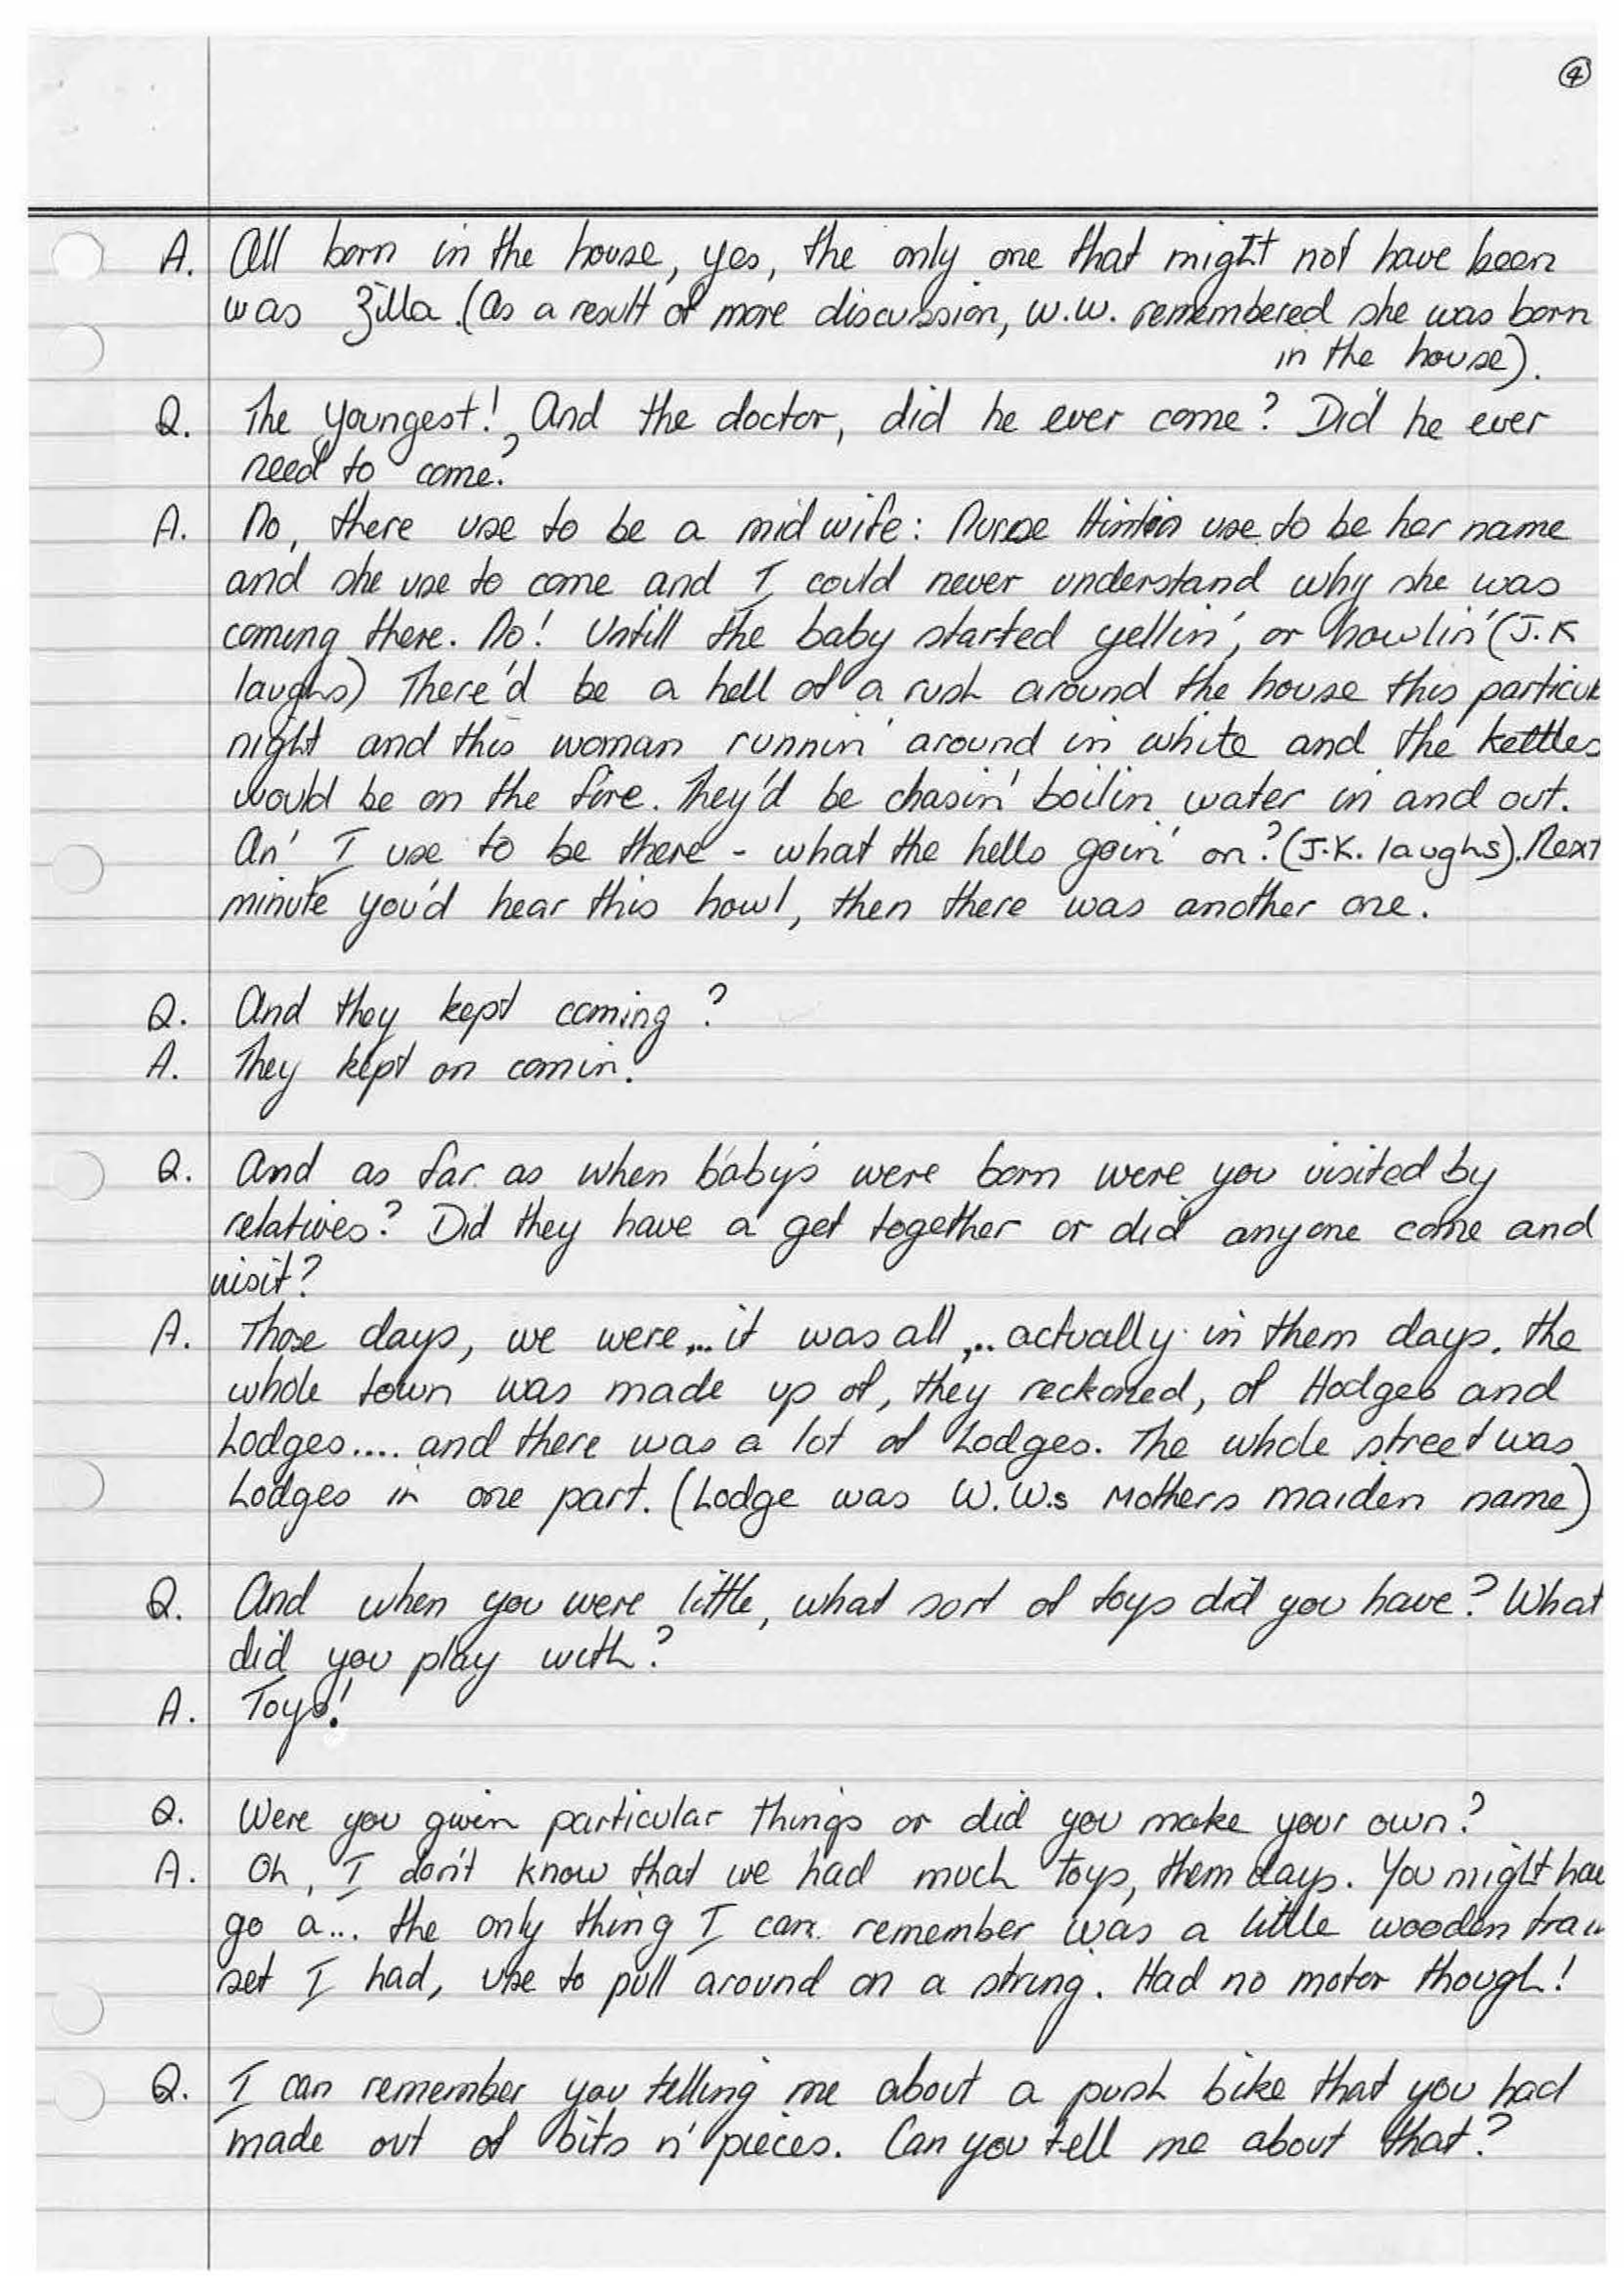 4
A. All born in the house, yes, the only one that might not have been
was Zilla. (As a result of more discussion, W.W. remembered she was born
in the house).
Q. The youngest! And the doctor, did he ever come? Did he ever
need to come?
A. No, there use to be a midwife: Nurse use to be her name
and she use to come and I could never understand why she was
coming there. No! Untill the baby started yellin', or howlin' (J.K
laughs) There'd be a hell of a rush around the house this particul
night and this woman runnin' around in white and the kettles
would be on the fire. They'd be chasin' boilin water in and out.
An' I use to be there - what the hells goin' on? (J.K. laughs). Next
minute you'd hear this howl, then there was another one.
Q. And they kept coming?
A. They kept on comin.'
Q. And as far as when baby's were born were you visited by
relatives? Did they have a get together or did anyone come and
visit?
A. Those days, we were... it was all ... actually in them days. the
whole town was made up of, they reckoned, of Hodges and
Lodges.... and there was a lot of Lodges. The whole street was
Lodges in one part. (Lodge was W.W.s Mothers maiden name)
Q. And when you were little, what sort of toys did you have? What
did you play with?
A. Toys!
Q. Were you given particular things or did you make your own?
A. Oh, I don't know that we had much toys, them days. You might hae
go a... the only thing I can remember was a little wooden train
set I had, use to pull around on a string. Had no motor though!
Q. I can remember you telling me about a push bike that you had
made out of bits n' pieces. Can you tell me about that?